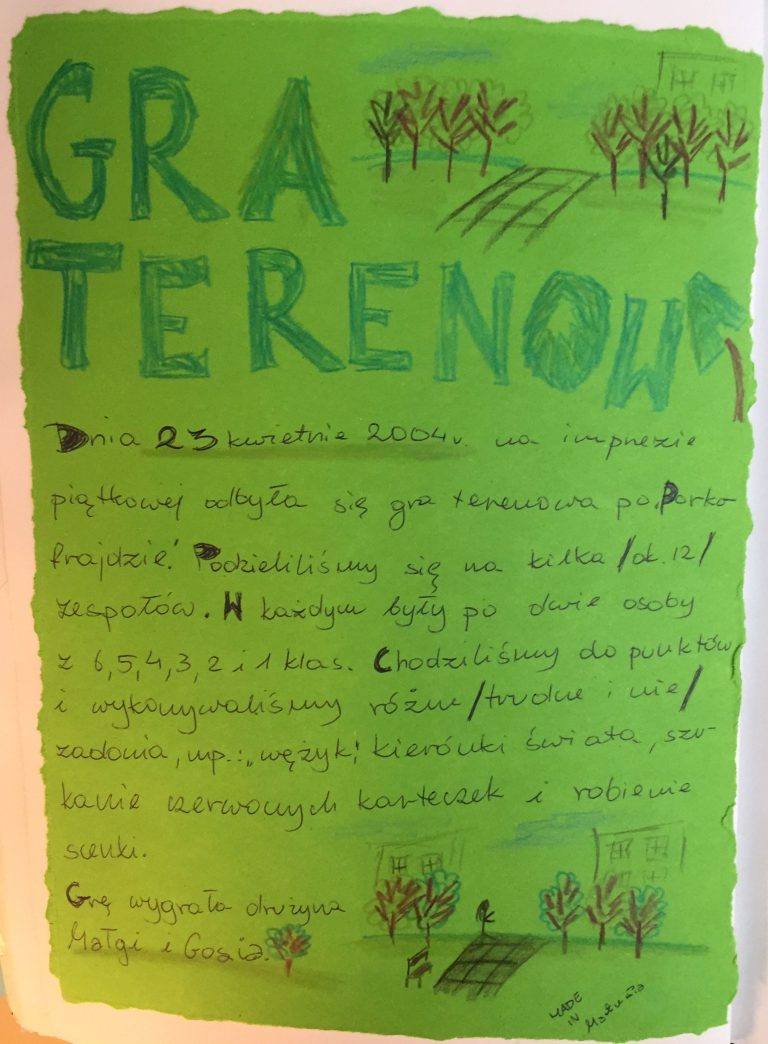 GRA
TERENOWA
Dnia 23 kwietnie 2004r. na imprezie
piątkowej odbyła się gra terenowa po Parko
frajdzie! Podzieliliśmy się na kilka /ok. 12/
zespołów. W każdym były po dwie osoby
z 6,5,4,3,2 i 1 klas. Chodziliśmy do punktów
i wykonywaliśmy różne /trudne i nie/
zadania, np.: „wężyk", kierunki świata, szu-
kanie czerwonych karteczek i robienie
scenki.
Grę wygrała drużyna
Małgi i Gosia.
MADE
IN